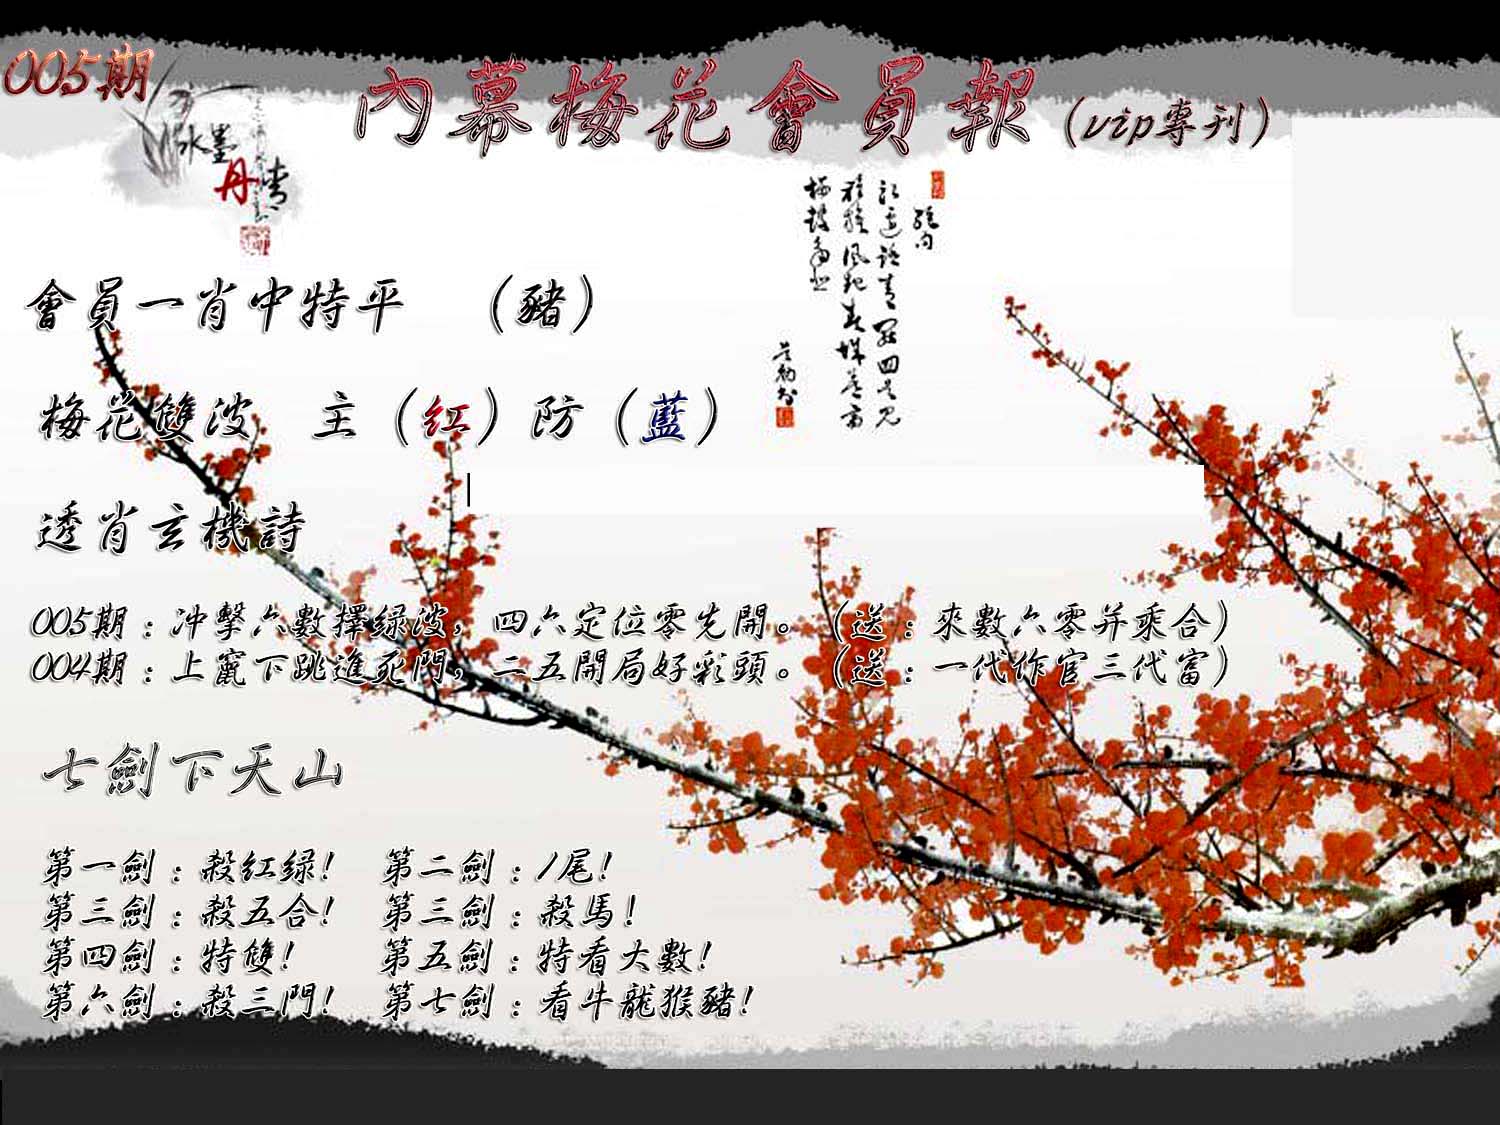 005期
內幕梅花會員報（vip專刊）
水墨
丹青
絕句
會員一肖中特平　（豬）
梅花雙波　主（紅）防（藍）
透肖玄機詩
005期：冲擊六數擇绿波，四六定位零先開。（送：來數六零并乘合）
004期：上竄下跳進死門，二五開局好彩頭。（送：一代作官三代富）
七劍下天山
第一劍：殺紅绿！　第二劍：1尾！
第三劍：殺五合！　第三劍：殺馬！
第四劍：特雙！　第五劍：特看大數！
第六劍：殺三門！　第七劍：看牛龍猴豬！